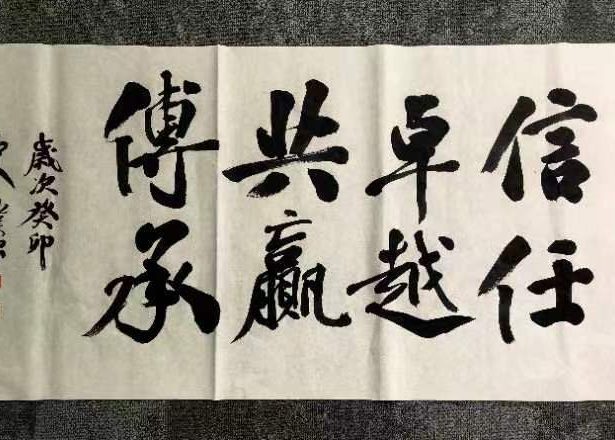 信任
卓越
共赢
傳承
歲次癸卯